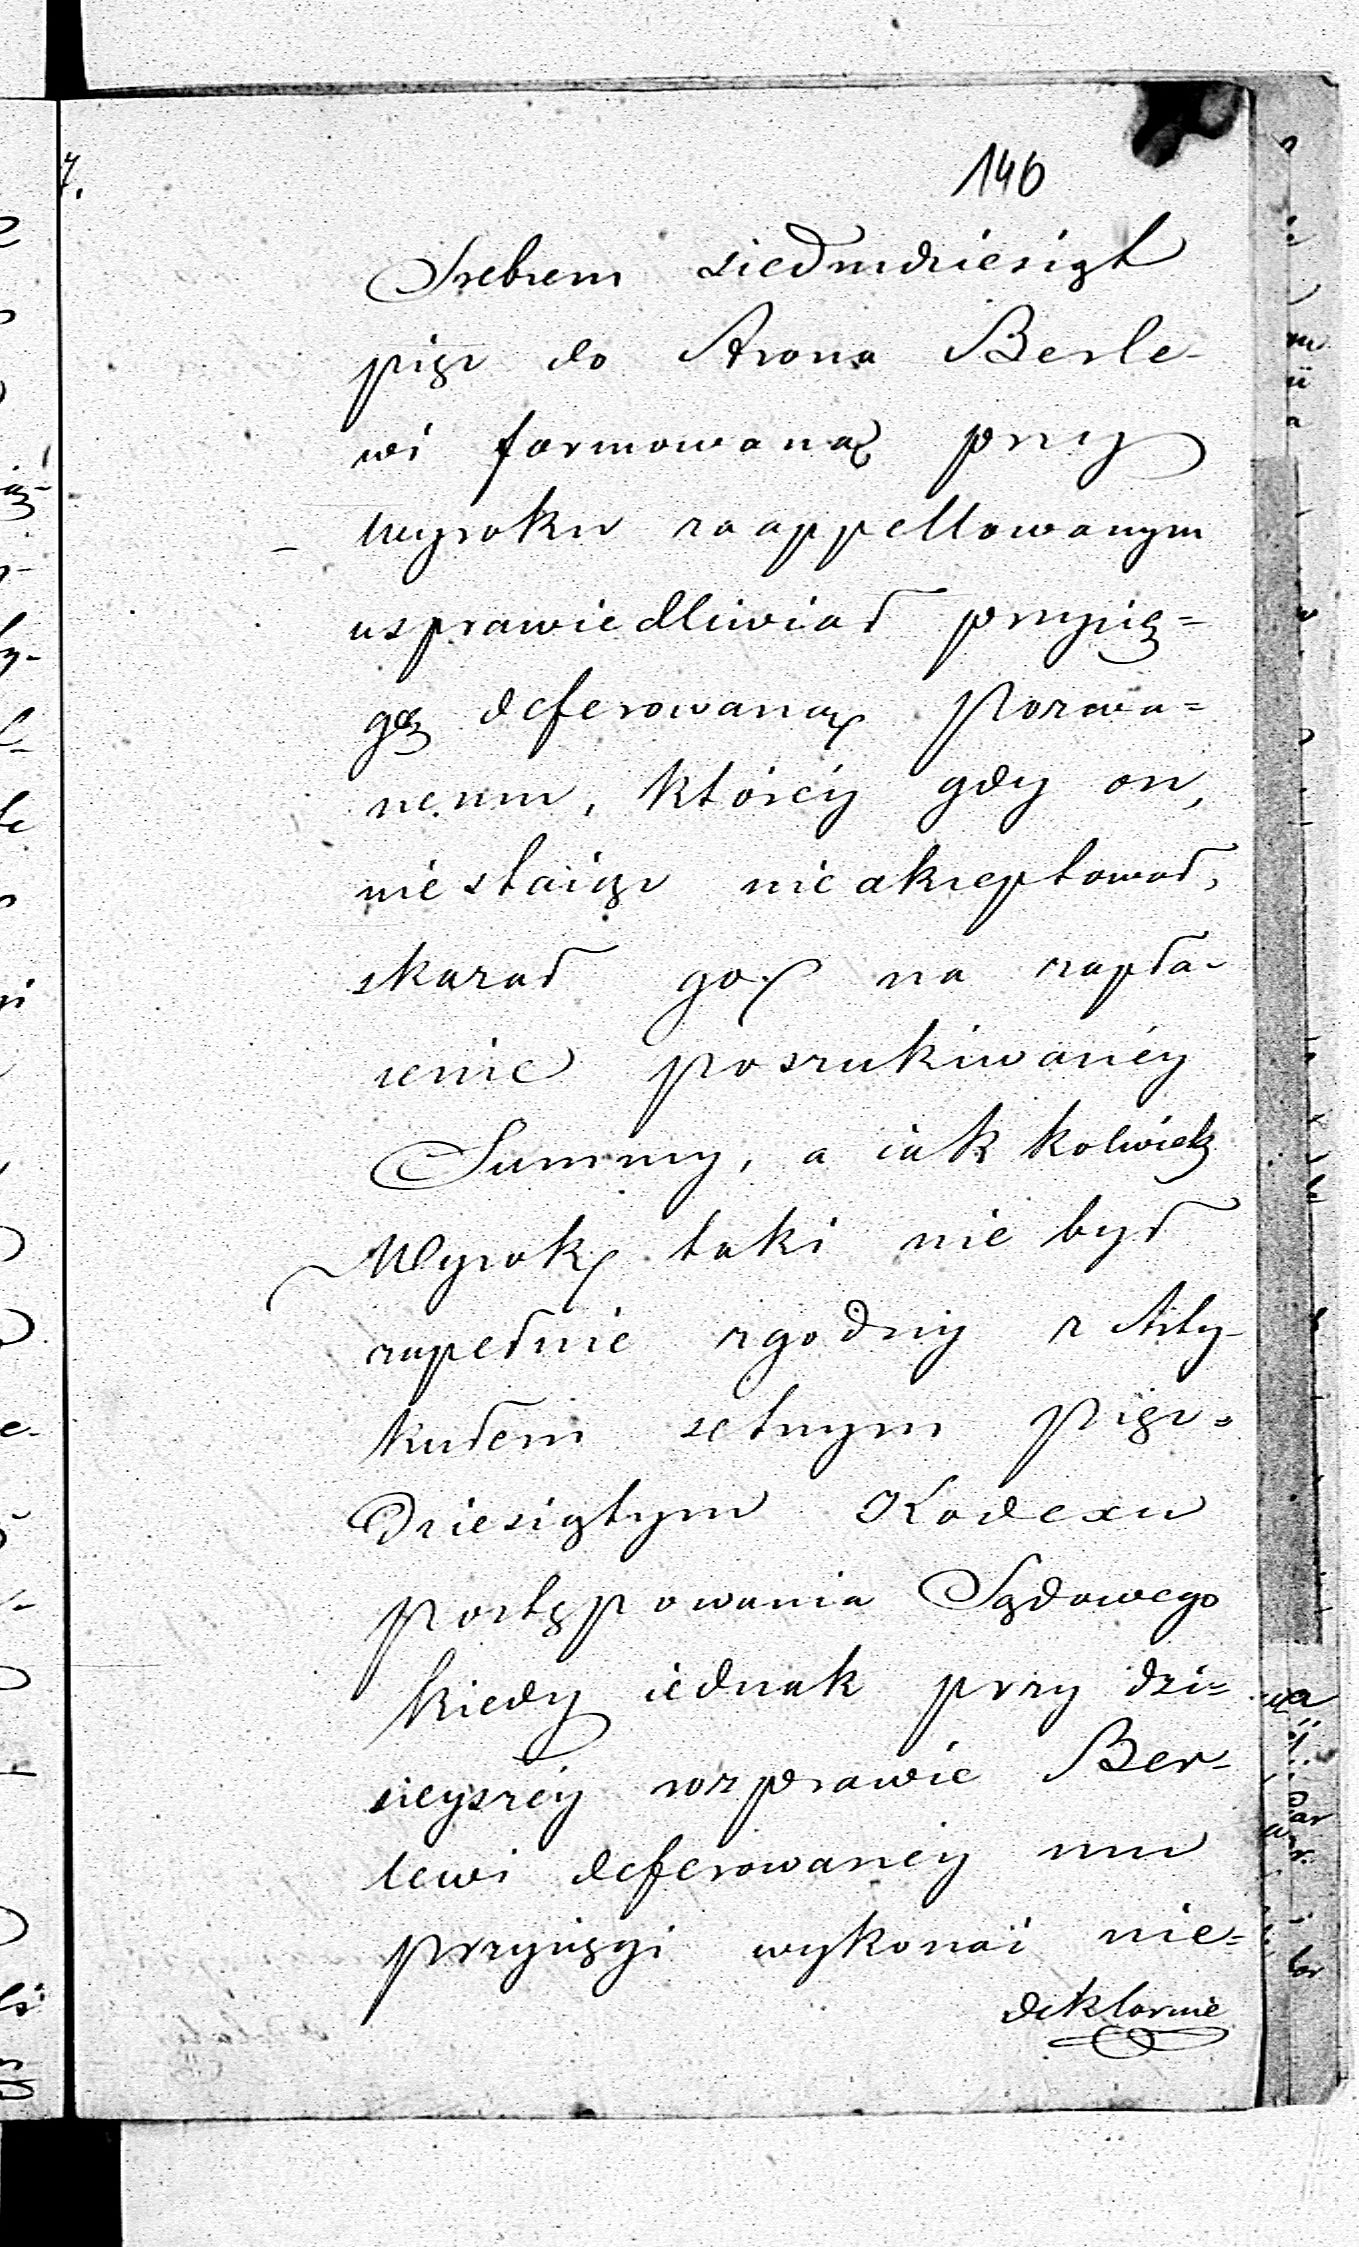 146
Srebrem siedmdziesiąt
pięć do Arona Berle-
wi formowaną przy
Wyroku zaappellowanym
usprawiedliwiał przysię=
gą deferowaną Pozwa=
nemu, któréy gdy on,
niestaiąc nieakceptował,
skazał go na zapła-
cenie poszukiwanéy
Summy, a iak kolwiek
Wyrok taki nie był
zupełnie zgodny z Arty-
kułem setnym pięć=
dziesiątym Kodexu
Postępowania Sądowego
kiedy iednak przy dzi=
sieyszéy rozprawie Ber-
lewi deferowanéy mu
przysięgi wykonać nie=
deklaruie